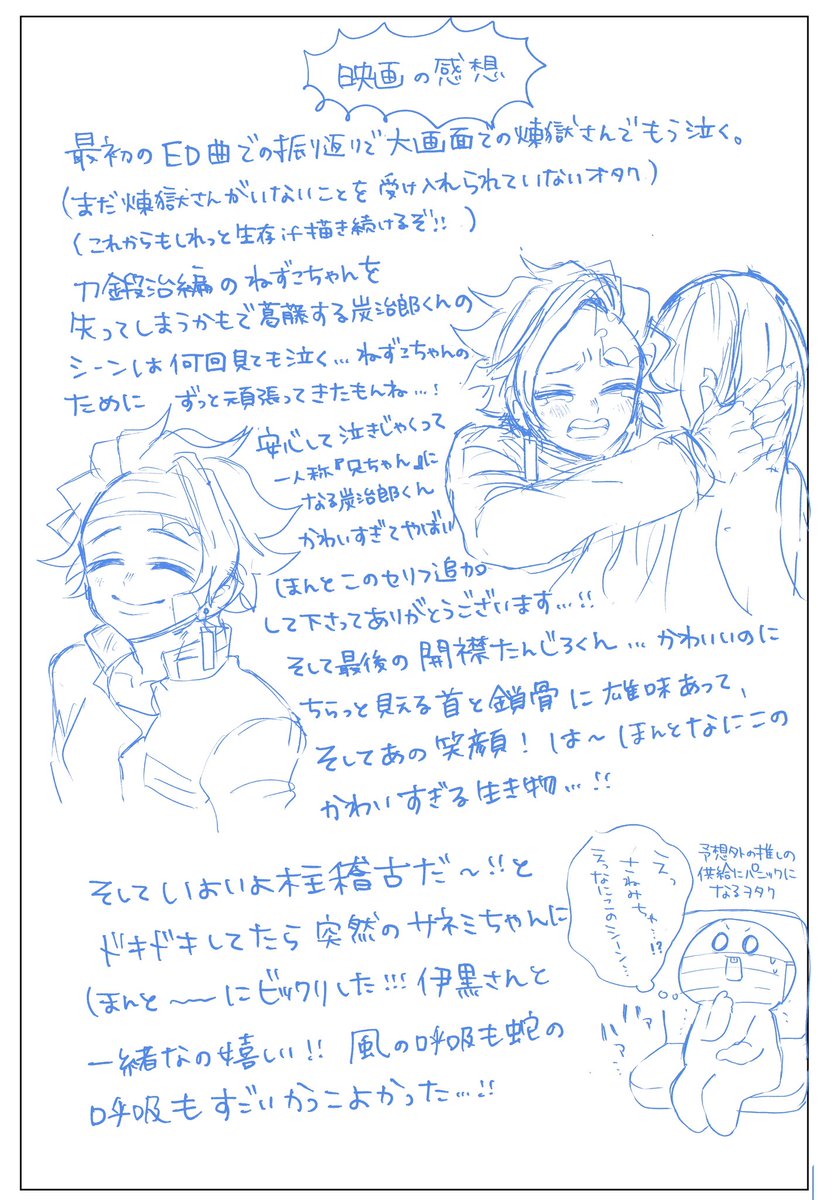 映画の感想
最初のED曲での振り返りで大画面での煉獄さんでもう泣く。
(まだ煉獄さんがいないことを受け入れられていないオタク)
(これからもしれっと生存if描き続けるぞ!!)
刀鍛治編のねずこちゃんを
失ってしまうかもで葛藤する炭治郎くんの
シーンは何回見ても泣く…ねずこちゃんの
ために ずっと頑張ってきたもんね…!
安心して泣きじゃくって
一人称『兄ちゃん』に
なる炭治郎くん
かわいすぎてやばい
ほんとこのセリフ追加
して下さってありがとうございます…!!
そして最後の開襟たんじろくん…かわいいのに
ちらっと見える首と鎖骨に雄味あって、
そしてあの笑顔!は〜ほんとなにこの
かわいすぎる生き物…!!
そしていよいよ柱稽古だ〜!!と
ドキドキしてたら突然のサネミちゃんに
ほんと〜〜にビックリした!!!伊黒さんと
一緒なの嬉しい!!風の呼吸も蛇の
呼吸もすごいかっこよかった…!!
予想外の推しの
供給にパニックに
なるヲタク
えっ
さねみちゃ…!?
えっなにこのシーン…
ドァ
ァ…